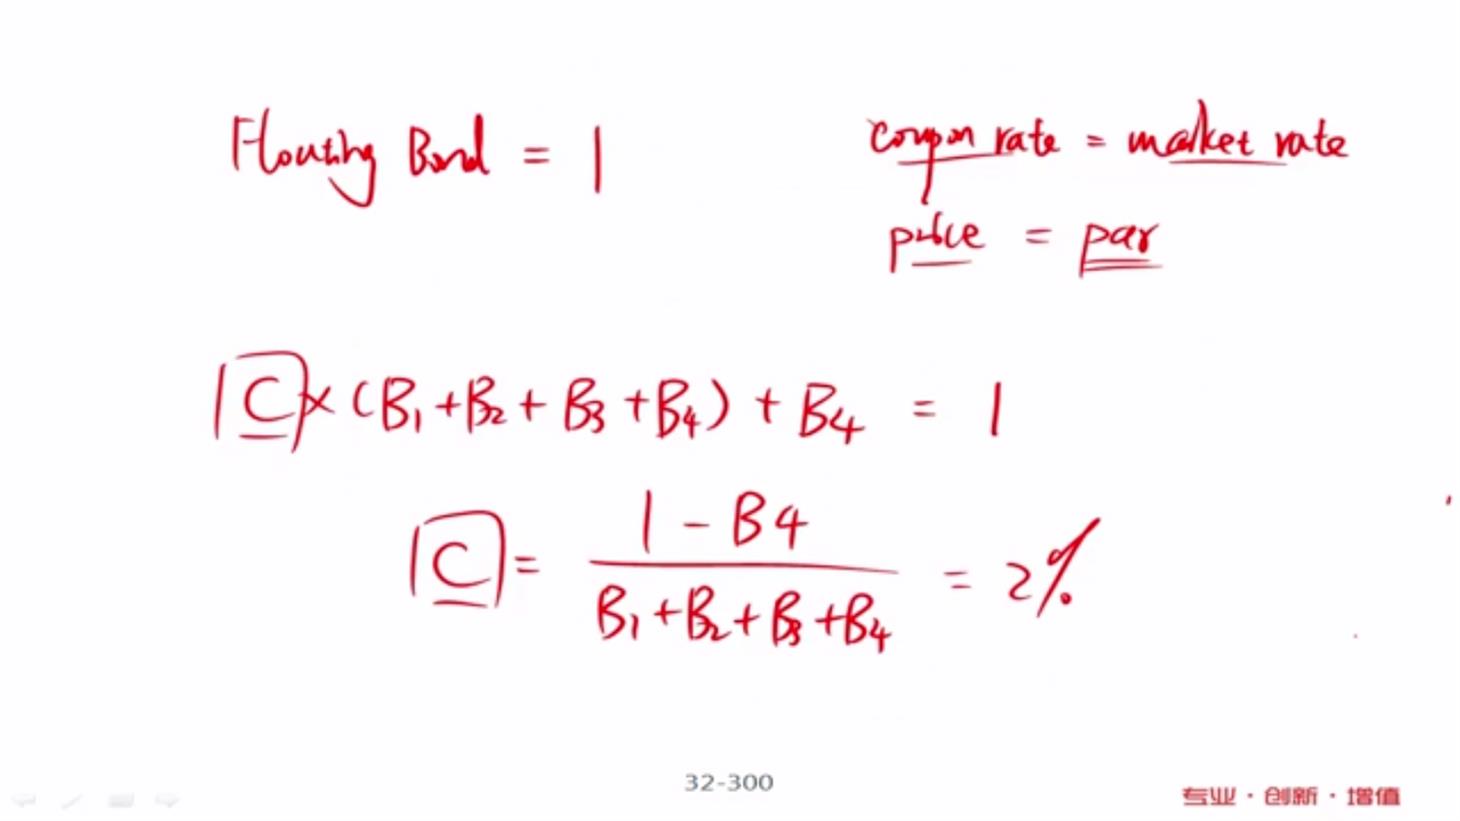 Floating Bond = 1
coupon rate = market rate
price = par
C × (B1 + B2 + B3 + B4) + B4 = 1
C = (1 - B4) / (B1 + B2 + B3 + B4) = 2%
32-300
专业·创新·增值